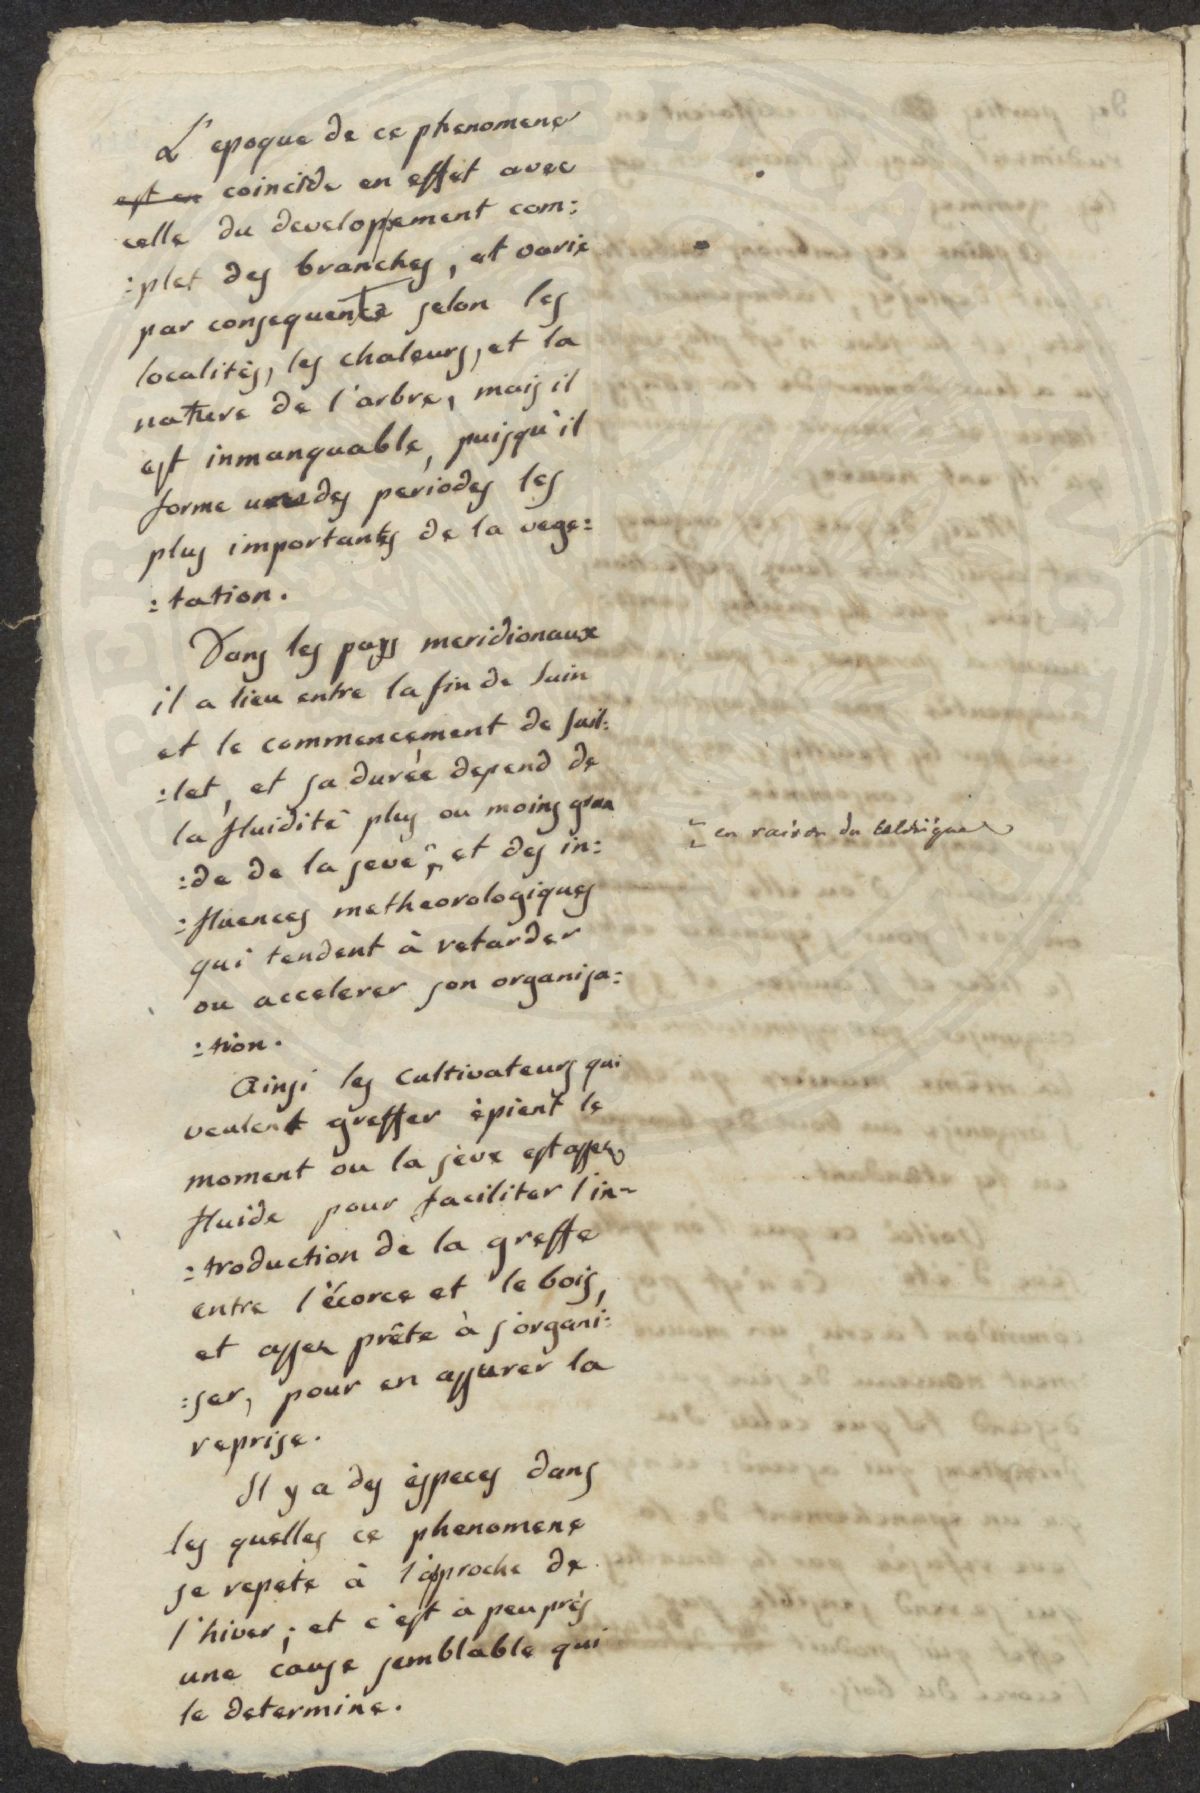 L'epoque de ce phenomene
est en coincide en effet avec
celle du developpement com:
:plet des branches, et varie
par consequente selon les
localités, les chaleurs, et la
nature de l'arbre, mais il
est inmanquable, puisqu'il
forme une des periodes les
plus importantes de la vege:
:tation.
Dans les pays meridionaux
il a lieu entre la fin de Juin
et le commencement de Juil:
:let, et sa durée depend de
la fluidité plus ou moins gran
:de de la seve, et des in:
en raison du
:fluences metheorologiques
qui tendent à retarder
ou accelerer son organisa:
:tion.
Ainsi les cultivateurs qui
veulent greffer épient le
moment ou la séve est assez
fluide pour faciliter l'in-
:troduction de la greffe
entre l'écorce et le bois,
et assez prête à s'organi:
:ser, pour en assurer la
reprise.
Il y a des éspeces dans
les quelles ce phenomene
se repete à l'approche de
l'hiver; et c'est à peu près
une cause semblable qui
le determine.